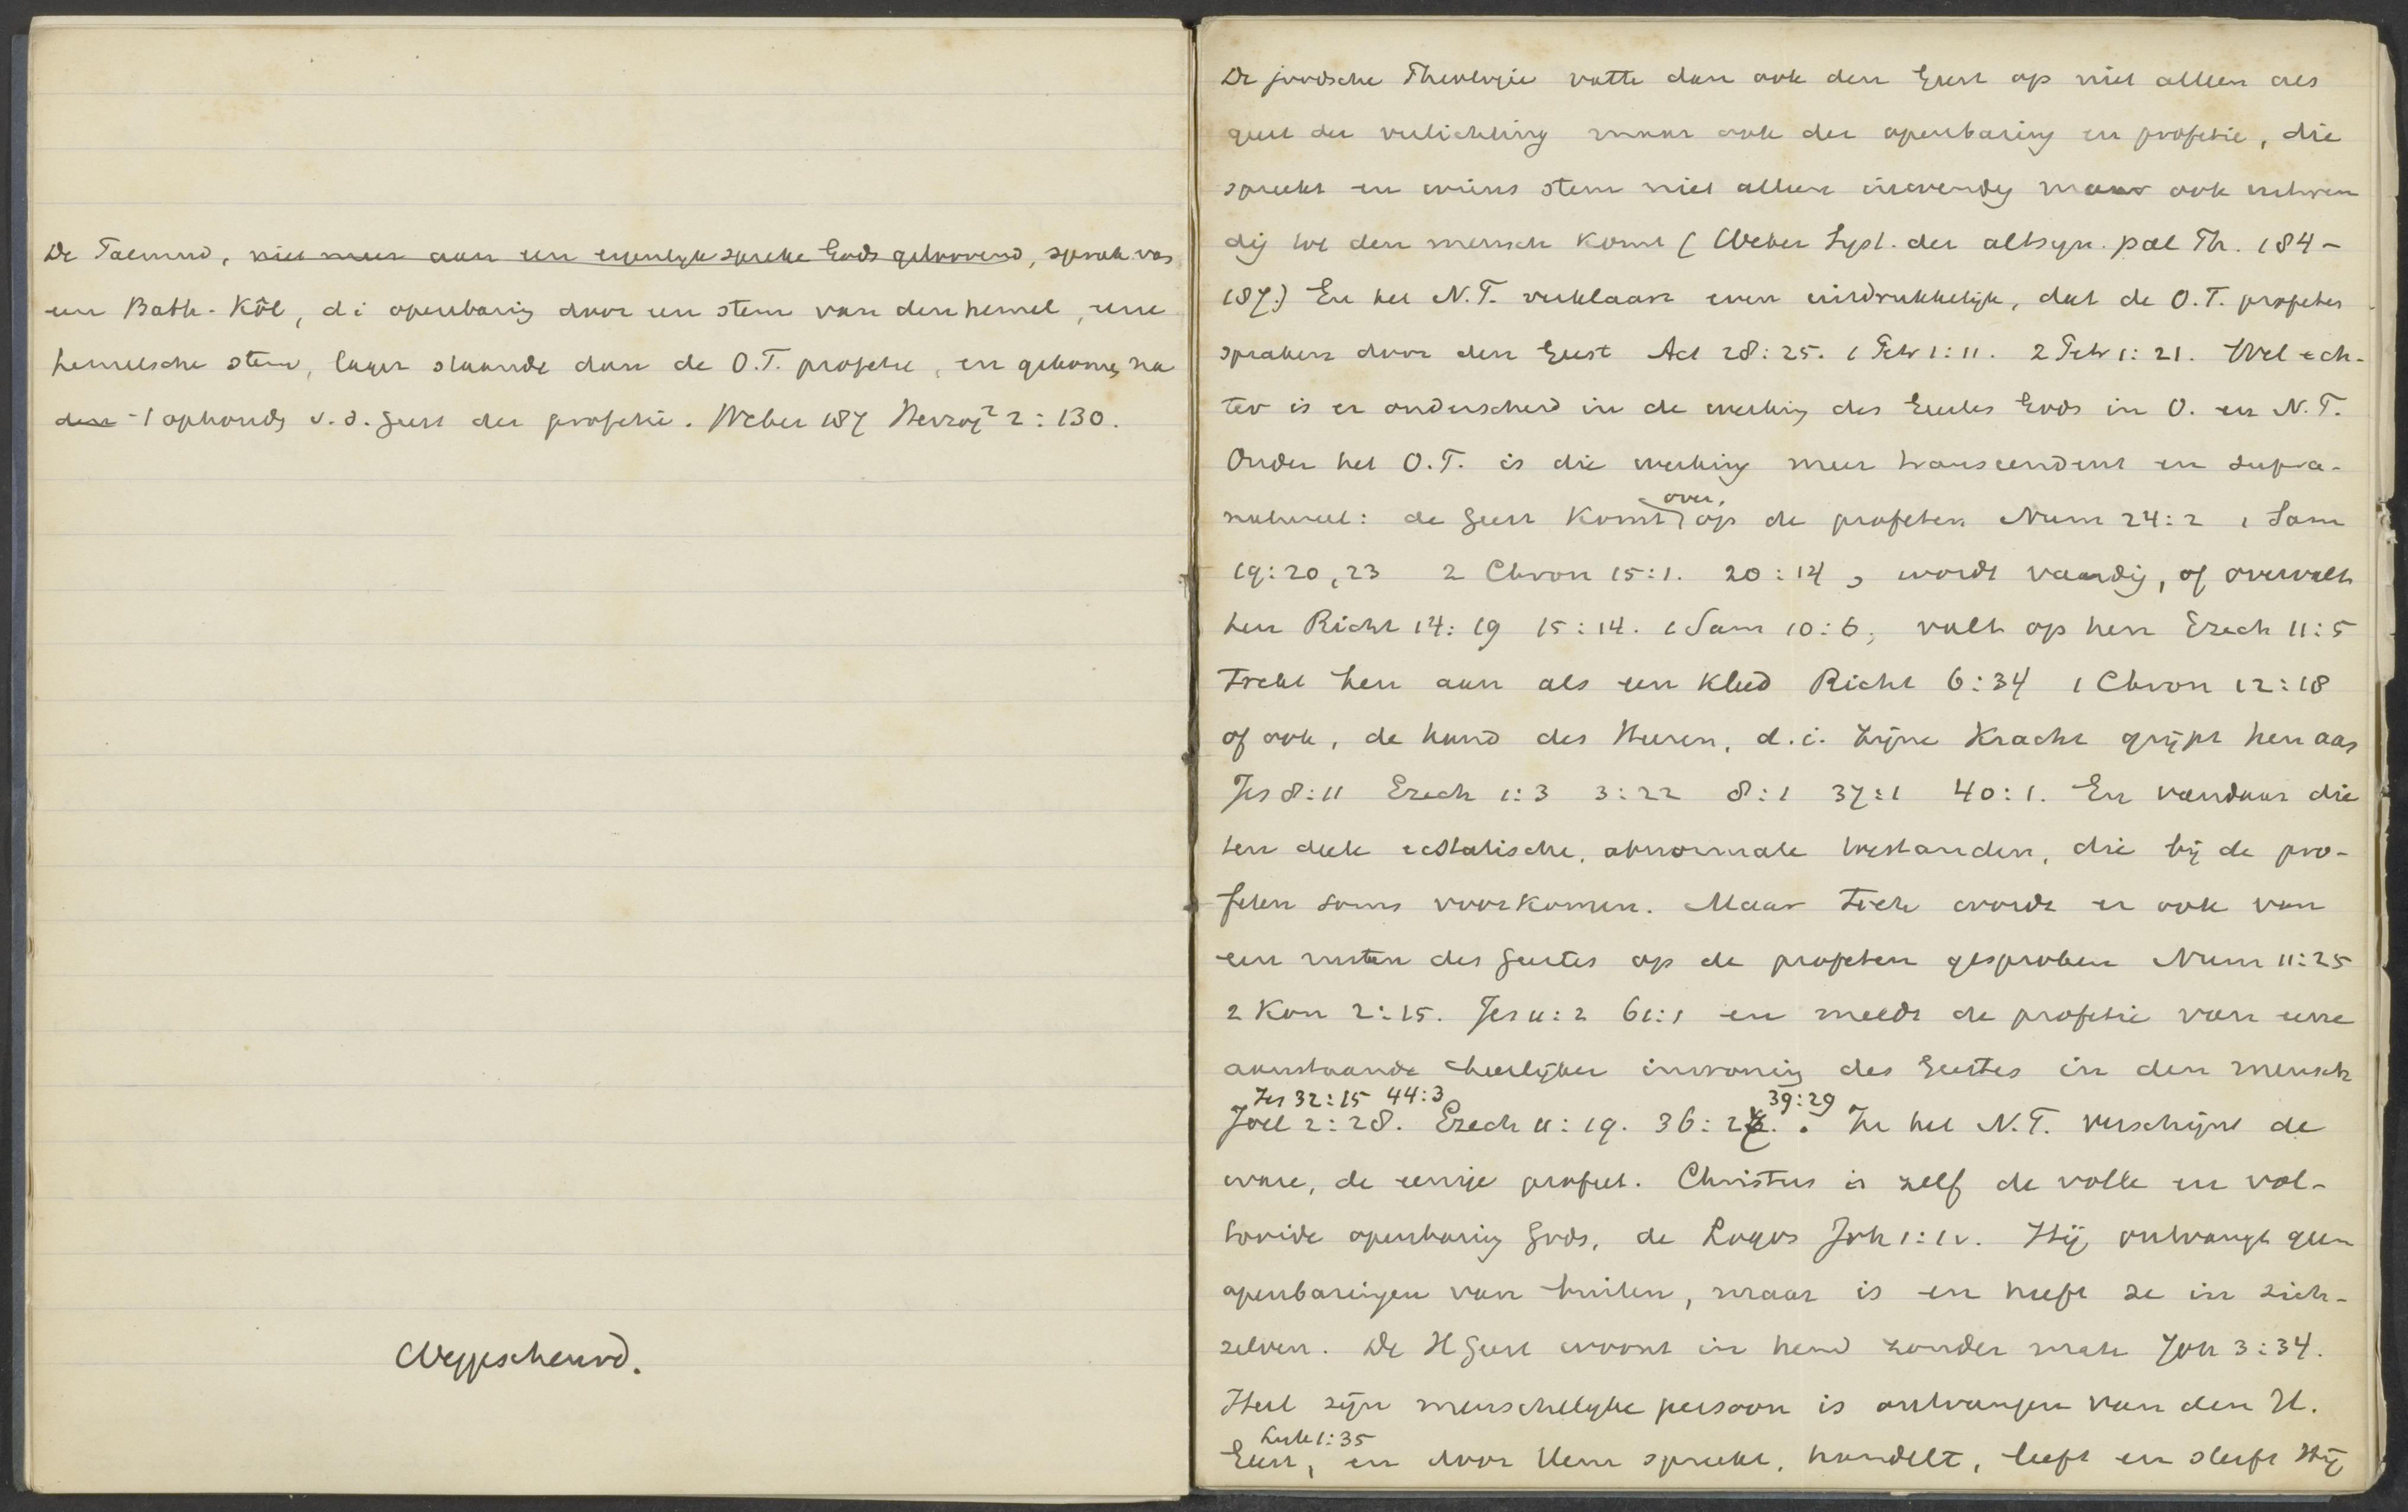 De Talmud, niet meer aan een eigenlijk spreken Gods geloovend, sprak van
een Bath-Kôl, d i openbaring door een stem van den hemel, eene
hemelsche stem, lager staande dan de O.T. profetie, en gekomen na
den ophouden v. d. geest der profetie. Weber 187 Herzog² 2:130.
Weggescheurd.
De joodsche Theologie vatte dan ook den Geest op niet alleen als
geest der verlichting maar ook der openbaring en profetie, die
spreekt en wiens stem niet alleen inwendig maar ook uitwen
dig tot den mensch komt (Weber Syst. der altsyn. pal Th. 184-
187.) En het N.T. verklaart even uitdrukkelijk, dat de O.T. profeten
spraken door den Geest Act 28:25. 1 Petr 1:11. 2 Petr 1:21. Wel ech-
ter is er onderscheid in de werking des Geestes Gods in O. en N.T.
Onder het O.T. is die werking meer transcendent en supra-
natureel: de geest komt over, op de profeten Num 24:2 1 Sam
19:20,23 2 Chron 15:1. 20:14, wordt vaardig, of overvalt
hen Richt 14:19 15:14. 1 Sam 10:6; valt op hen Ezech 11:5
trekt hen aan als een kleed Richt 6:34 1 Chron 12:18
of ook, de hand des Heeren, d.i. zijne kracht grijpt hen aan
Jes 8:11 Ezech 1:3 3:22 8:1 37:1 40:1. En vandaar die
ten deele ecstatische, abnormale toestanden, die bij de pro-
feten soms voorkomen. Maar toch wordt er ook van
een rusten des geestes op de profeten gesproken Num 11:25
2 Kon 2:15. Jes 11:2 61:1 en meldt de profetie van eene
aanstaande heerlijker inwoning des Geestes in den mensch
Jes 32:15 44:3 39:29
Joel 2:28. Ezech 11:19. 36:27. In het N.T. verschijnt de
ware, de eenige profeet. Christus is zelf de volle en vol-
tooide openbaring Gods, de Logos Joh 1:1v. Hij ontvangt geen
openbaringen van buiten, maar is en heeft ze in zich-
zelven. De H Geest woont in hem zonder mate Joh 3:34.
Heel zijn menschelijke persoon is ontvangen van den H.
Luk 1:35
Geest, en door Hem spreekt, handelt, leeft en sterft Hij